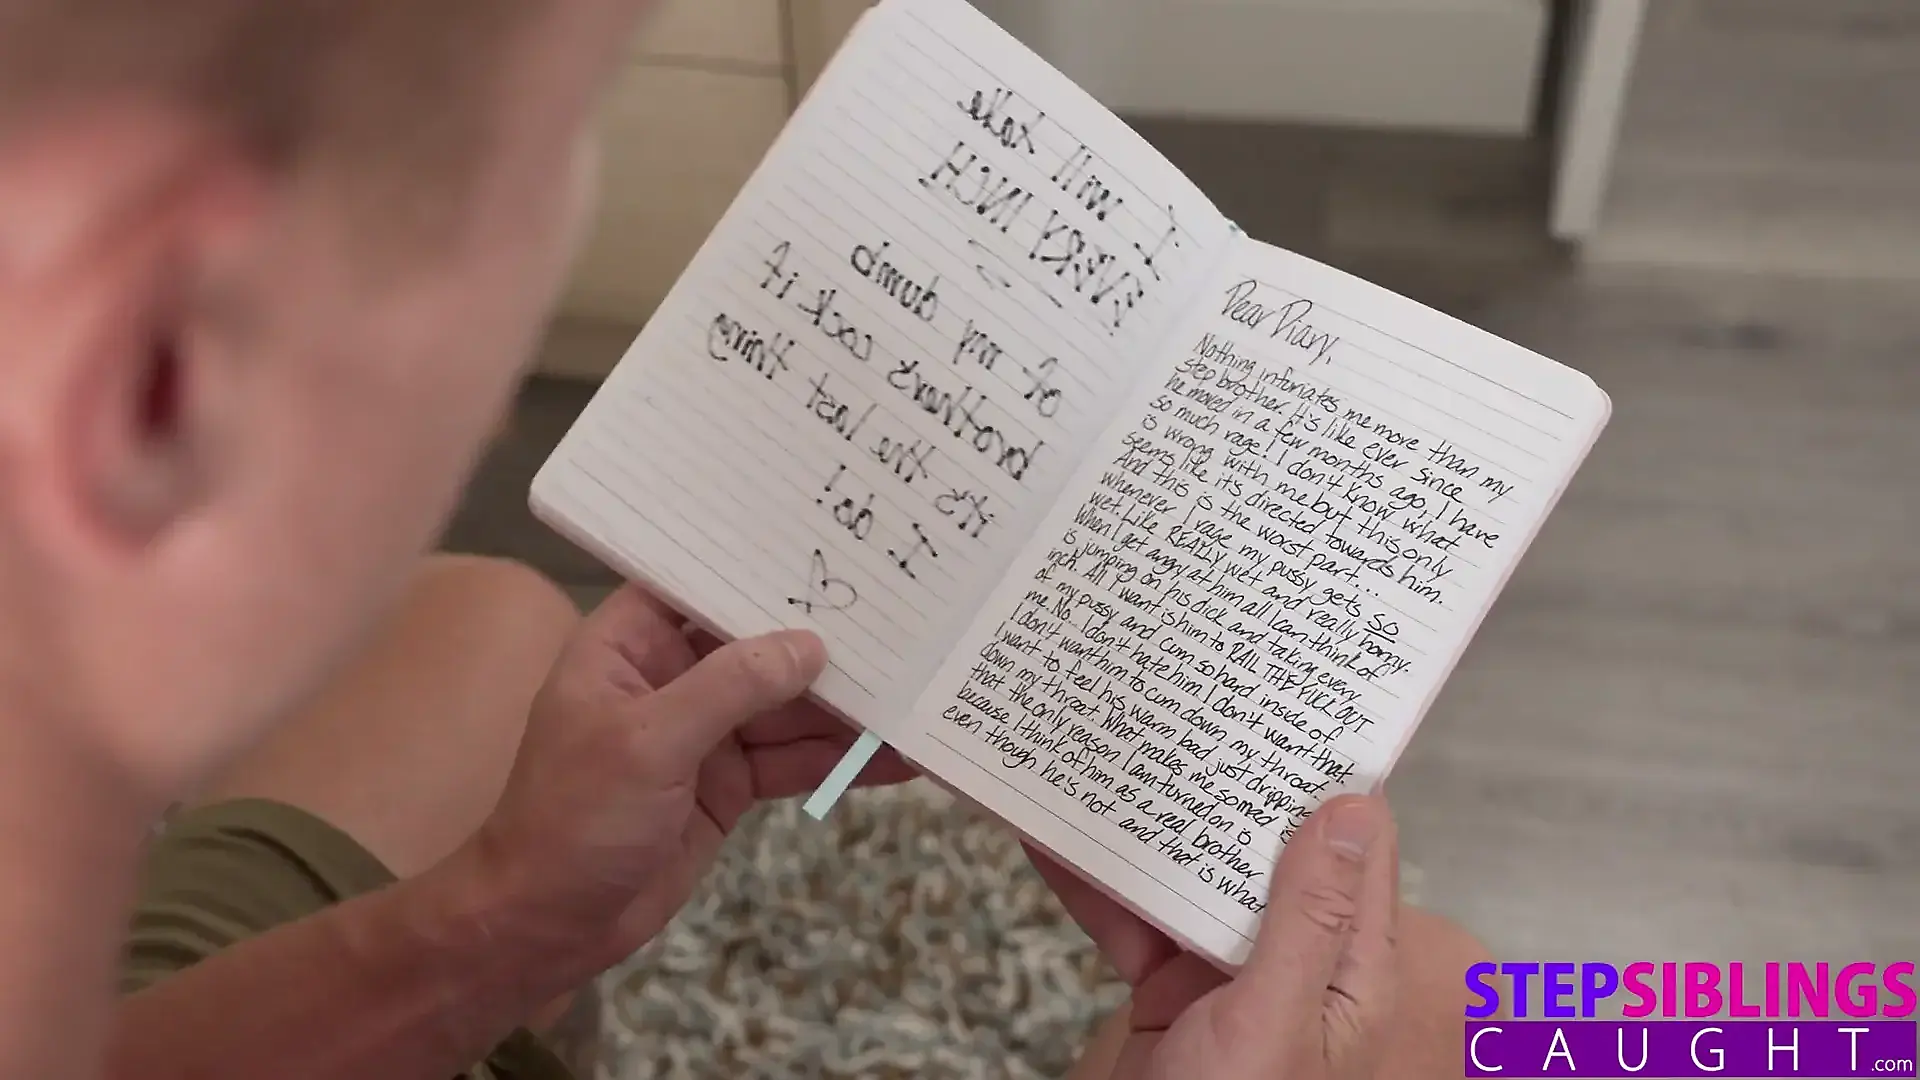 I will take
EVERY INCH
of my dumb
brother's cock if
it's the last thing
I do!
Dear Diary,
Nothing infuriates me more than my
step brother. It's like ever since
he moved in a few months ago, I have
so much rage! I don't know what
is wrong with me but this only
seems like it's directed towards him.
And this is the worst part...
whenever I rage my pussy gets SO
wet. Like REALLY wet and really horny.
When I get angry at him all I can think of
is jumping on his dick and taking every
inch. All I want is him to RAIL THE FUCK OUT
of my pussy and cum so hard inside of
me. No. I don't hate him. I don't want that.
I don't want him to cum down my throat.
I want to feel his warm just dripping
down my throat. What makes me so mad is
that the only reason I am turned on is
because I think of him as a real brother
even though he's not and that is what
STEPSIBLINGS
CAUGHT.com